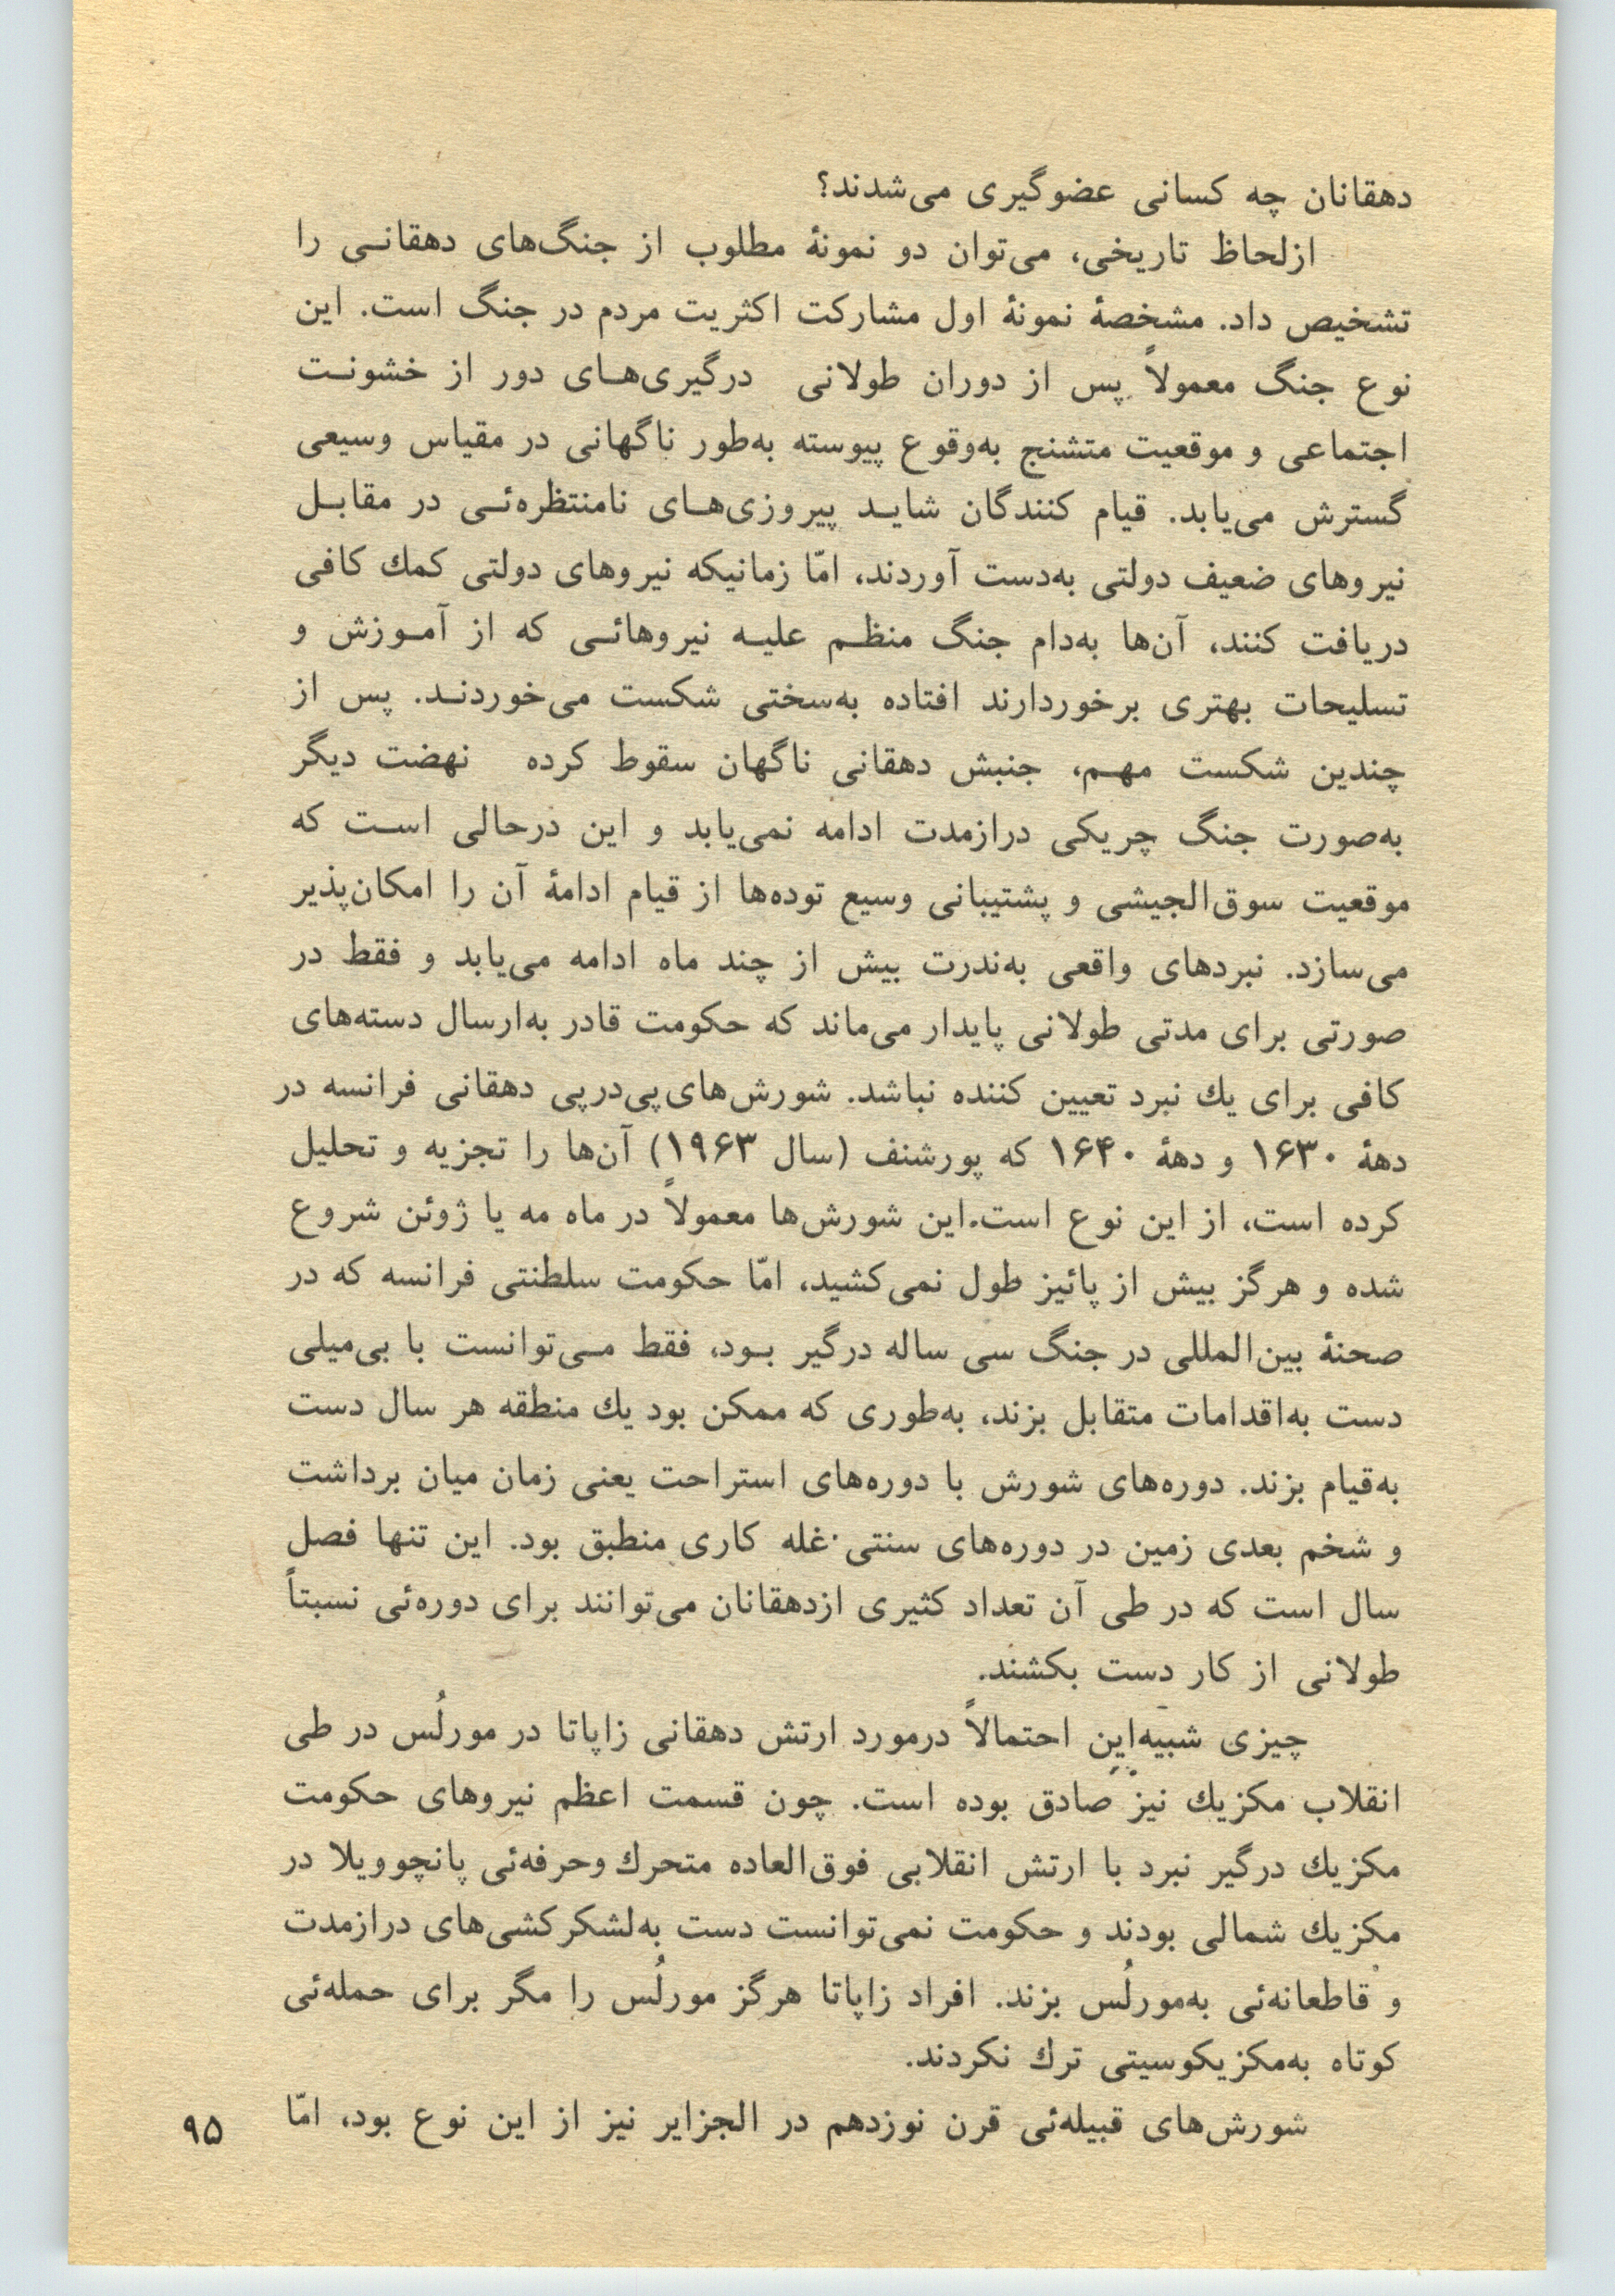 دهقانان چه کسانی عضوگیری می‌شدند؟
ازلحاظ تاریخی، می‌توان دو نمونهٔ مطلوب از جنگ‌های دهقانـی را
تشخیص داد. مشخصهٔ نمونهٔ اول مشارکت اکثریت مردم در جنگ است. این
نوع جنگ معمولاً پس از دوران طولانی درگیری‌هـای دور از خشونـت
اجتماعی و موقعیت متشنج به‌وقوع پیوسته به‌طور ناگهانی در مقیاس وسیعی
گسترش می‌یابد. قیام کنندگان شایـد پیروزی‌هـای نامنتظره‌ئـی در مقابـل
نیروهای ضعیف دولتی به‌دست آوردند، امّا زمانیکه نیروهای دولتی کمك کافی
دریافت کنند، آن‌ها به‌دام جنگ منظـم علیـه نیروهائـی که از آمـوزش و
تسلیحات بهتری برخوردارند افتاده به‌سختی شکست می‌خوردنـد. پس از
چندین شکست مهـم، جنبش دهقانی ناگهان سقوط کرده نهضت دیگر
به‌صورت جنگ چریکی درازمدت ادامه نمی‌یابد و این درحالی اسـت که
موقعیت سوق‌الجیشی و پشتیبانی وسیع توده‌ها از قیام ادامهٔ آن را امکان‌پذیر
می‌سازد. نبردهای واقعی به‌ندرت بیش از چند ماه ادامه می‌یابد و فقط در
صورتی برای مدتی طولانی پایدار می‌ماند که حکومت قادر به‌ارسال دسته‌های
کافی برای یك نبرد تعیین کننده نباشد. شورش‌های پی‌درپی دهقانی فرانسه در
دههٔ ۱۶۳۰ و دههٔ ۱۶۴۰ که پورشنف (سال ۱۹۶۳) آن‌ها را تجزیه و تحلیل
کرده است، از این نوع است.این شورش‌ها معمولاً در ماه مه یا ژوئن شروع
شده و هرگز بیش از پائیز طول نمی‌کشید، امّا حکومت سلطنتی فرانسه که در
صحنهٔ بین‌المللی در جنگ سی ساله درگیر بـود، فقط مـی‌توانست با بی‌میلی
دست به‌اقدامات متقابل بزند، به‌طوری که ممکن بود یك منطقه هر سال دست
به‌قیام بزند. دوره‌های شورش با دوره‌های استراحت یعنی زمان میان برداشت
و شخم بعدی زمین در دوره‌های سنتی غله کاری منطبق بود. این تنها فصل
سال است که در طی آن تعداد کثیری ازدهقانان می‌توانند برای دوره‌ئی نسبتاً
طولانی از کار دست بکشند.
چیزی شبیه‌این احتمالاً درمورد ارتش دهقانی زاپاتا در مورلُس در طی
انقلاب مکزیك نیز صادق بوده است. چون قسمت اعظم نیروهای حکومت
مکزیك درگیر نبرد با ارتش انقلابی فوق‌العاده متحرك وحرفه‌ئی پانچوویلا در
مکزیك شمالی بودند و حکومت نمی‌توانست دست به‌لشکرکشی‌های درازمدت
و قاطعانه‌ئی به‌مورلُس بزند. افراد زاپاتا هرگز مورلُس را مگر برای حمله‌ئی
کوتاه به‌مکزیکوسیتی ترك نکردند.
شورش‌های قبیله‌ئی قرن نوزدهم در الجزایر نیز از این نوع بود، امّا
۹۵